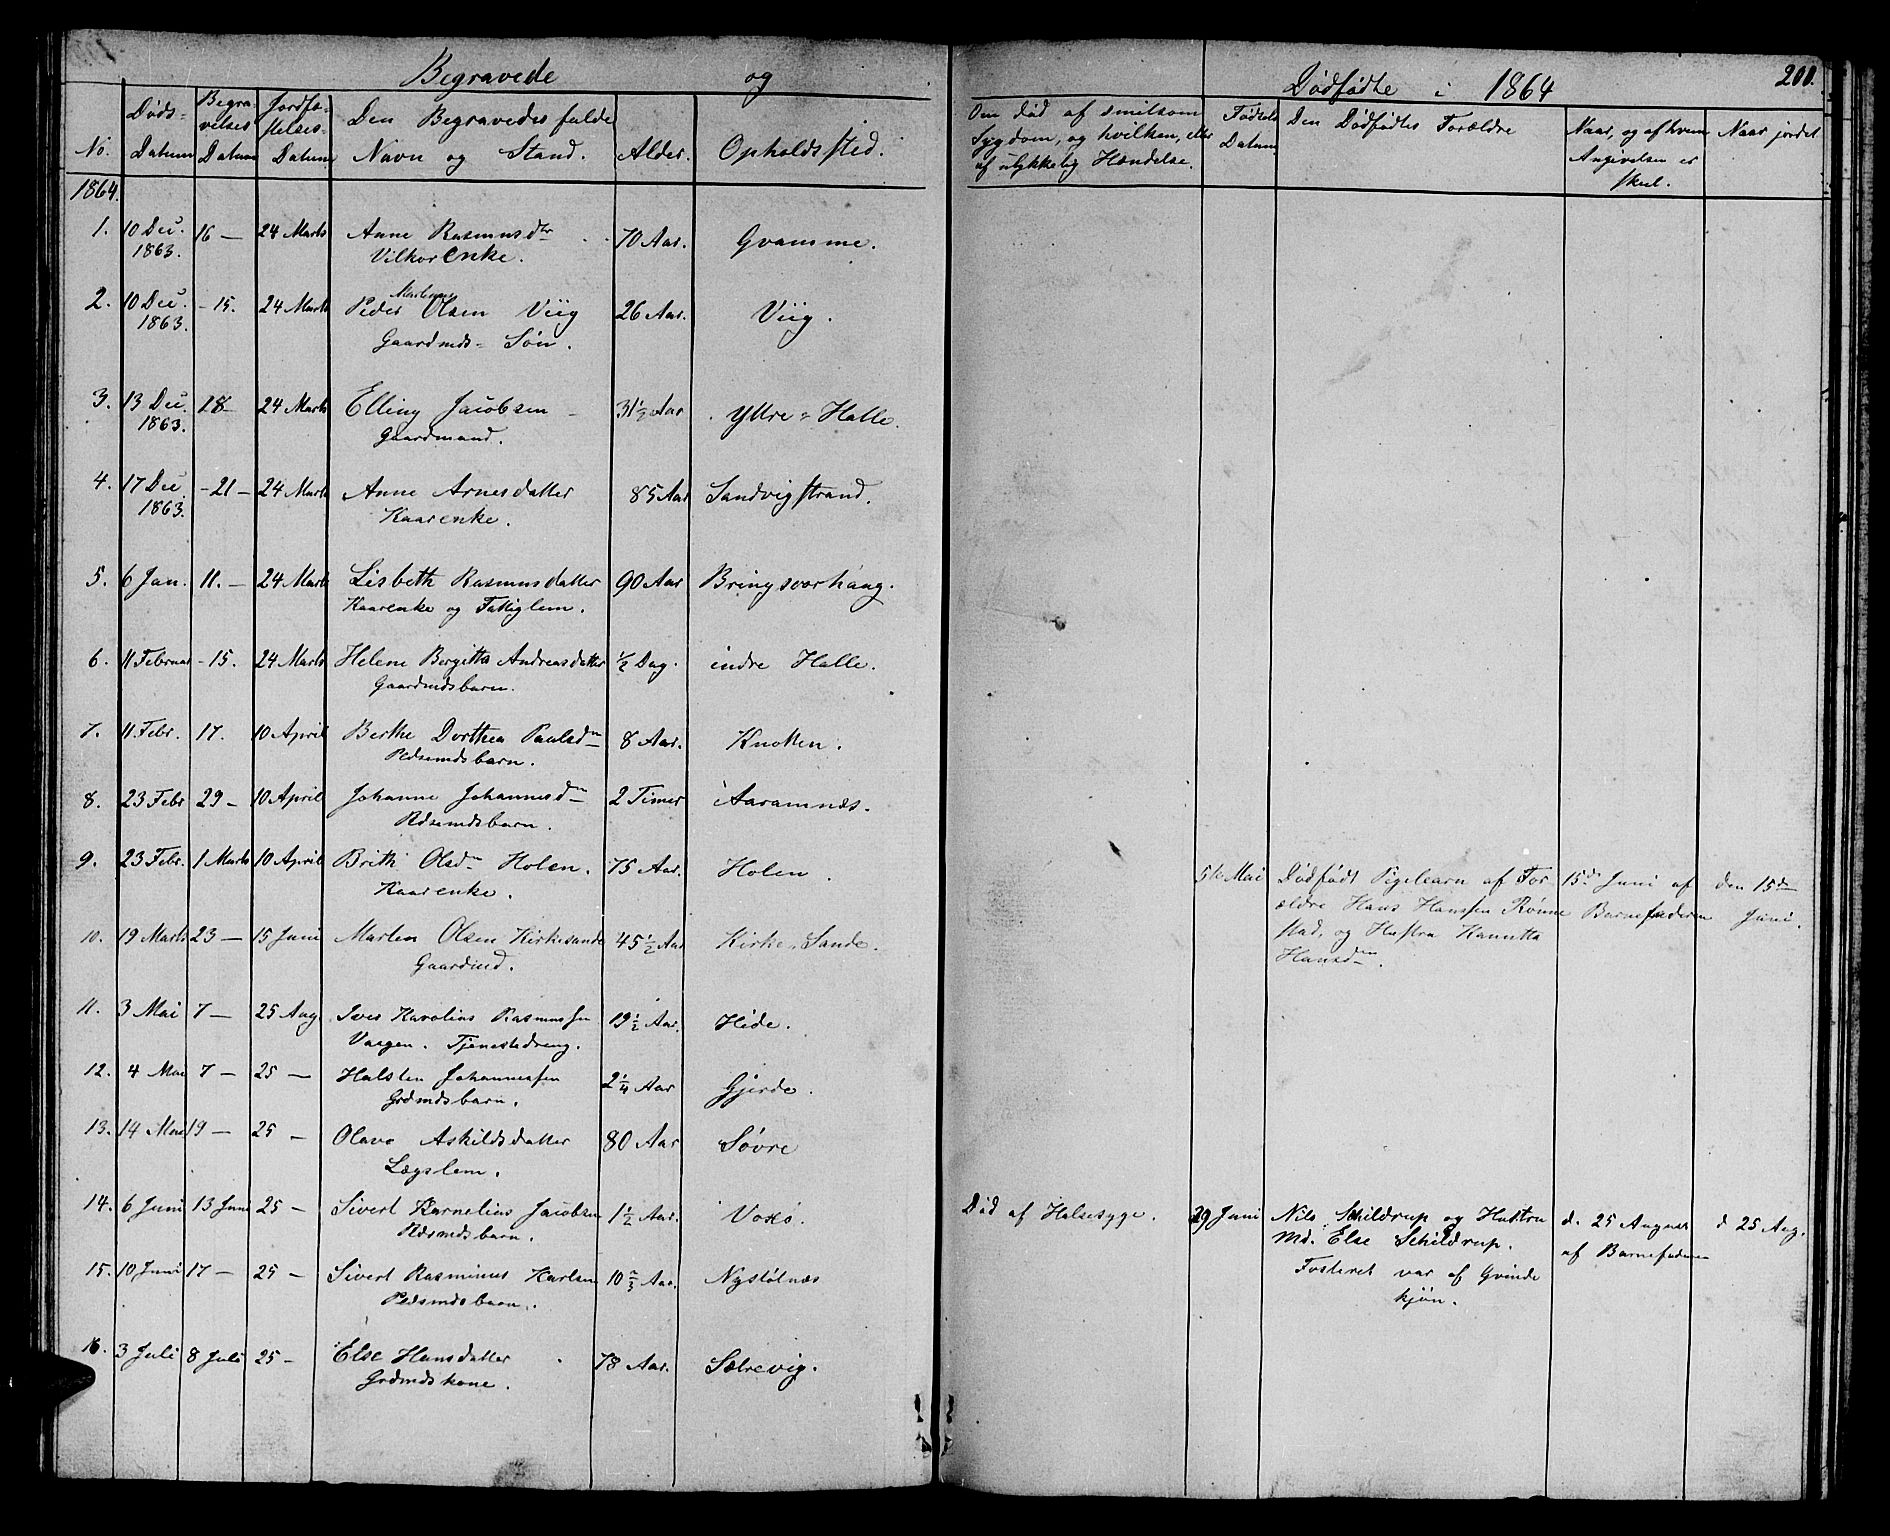 Begravede og
Dødfødte i 1864 200.
No. Døds-Datum Begravelses Datum Jordfæstelses-Datum Den Begravedes fulde Navn og Stand. Alder. Opholdssted.
Om død af smitsom Sygdom, og hvilken, eller af ulykkelig Hændelse. Fødsels Datum Den Dødfødtes Forældre Naar, og af hvem Angivelsen er skeet. Naar jordet
1864.
1. 10 Dec. 16 — 24 Marts Anne Rasmusdtr 70 Aar. Gvamme.
1863. Vilkorenke.
2. 10 Dec. - 15. 24 Marts Peder Martinus Olsen Viig 26 Aar. Viig.
1863. Gaardmds- Søn.
3. 13 Dec. 18- 24 Marts Elling Jacobsen 31 1/2 Aar Yttre - Halle.
1863. Gaardmand.
4. 17 Dec. - 21 — 24 Marts Anne Arnesdatter 85 Aar Sandvigstrand.
1863. Kaarenke.
5. 6 Jan. 11. — 24 Marts Lisbeth Rasmusdatter 90 Aar Bringsvorhaug.
Kaarenke og Fattiglem.
6. 11 Februar - 15. 24 Marts Helene Bergitta Andreasdatter 1/2 Dag. indre Halle.
Gaardmdsbarn.
7. 11 Febr. 17. 10 April Berthe Dorthea Paulsdn 8 Aar. Knotten.
Pdsmdsbarn.
8. 23 Febr 29 — 10 April Johanne Johannesdn 2 Timer Aaramnæs.
Pdsmdsbarn.
9. 23 Febr. 1 Marts 10 April Brithe Olsdn Holen. 75 Aar. Holen.
Kaarenke.
5te Mai Dødfødt Pigebarn af For- 15de Juni af den 15de
ældre Hans Hansen Rønne Barnefaderen Juni.
stad, og Hustru Kanutta
Hansdn.
10. 19 Marts 23 — 15 Juni Marten Olsen Kirkesande 45 1/2 Aar Kirke-Sande.
Gaardmd.
11. 3 Mai 7 — 25 Aug Iver Karolius Rasmussen 19 1/2 Aar. Hide.
Vaagen. Tjenestedreng.
12. 4 Mai 7 — 25 — Halsten Johannessen 2 1/4 Aar Gjerde.
Grdmdsbarn.
13. 14 Mai 19 — 25 — Olave Askildsdatter 80 Aar Søvre
Lægslem.
14. 6 Juni 13 Juni 25 — Sivert Karnelius Jacobsen 1 1/2 Aar. Voxø.
Pdsmdsbarn.
Død af Halsesyge. 29 Juni Nils Schildrup og Hustru d. 25 August d 25 Aug.
Md. Else Schildrup. af Barnefaderen
Fosteret var af Qvinde
kjøn.
15. 10 Juni 17 — 25 — Sivert Rasminus Karlsen 10 2/3 Aar. Nystølnæs
Pdsmdsbarn.
16. 3 Juli 8 Juli 25 - Else Hansdatter 78 Aar. Sætrevig.
Grdmdskone.